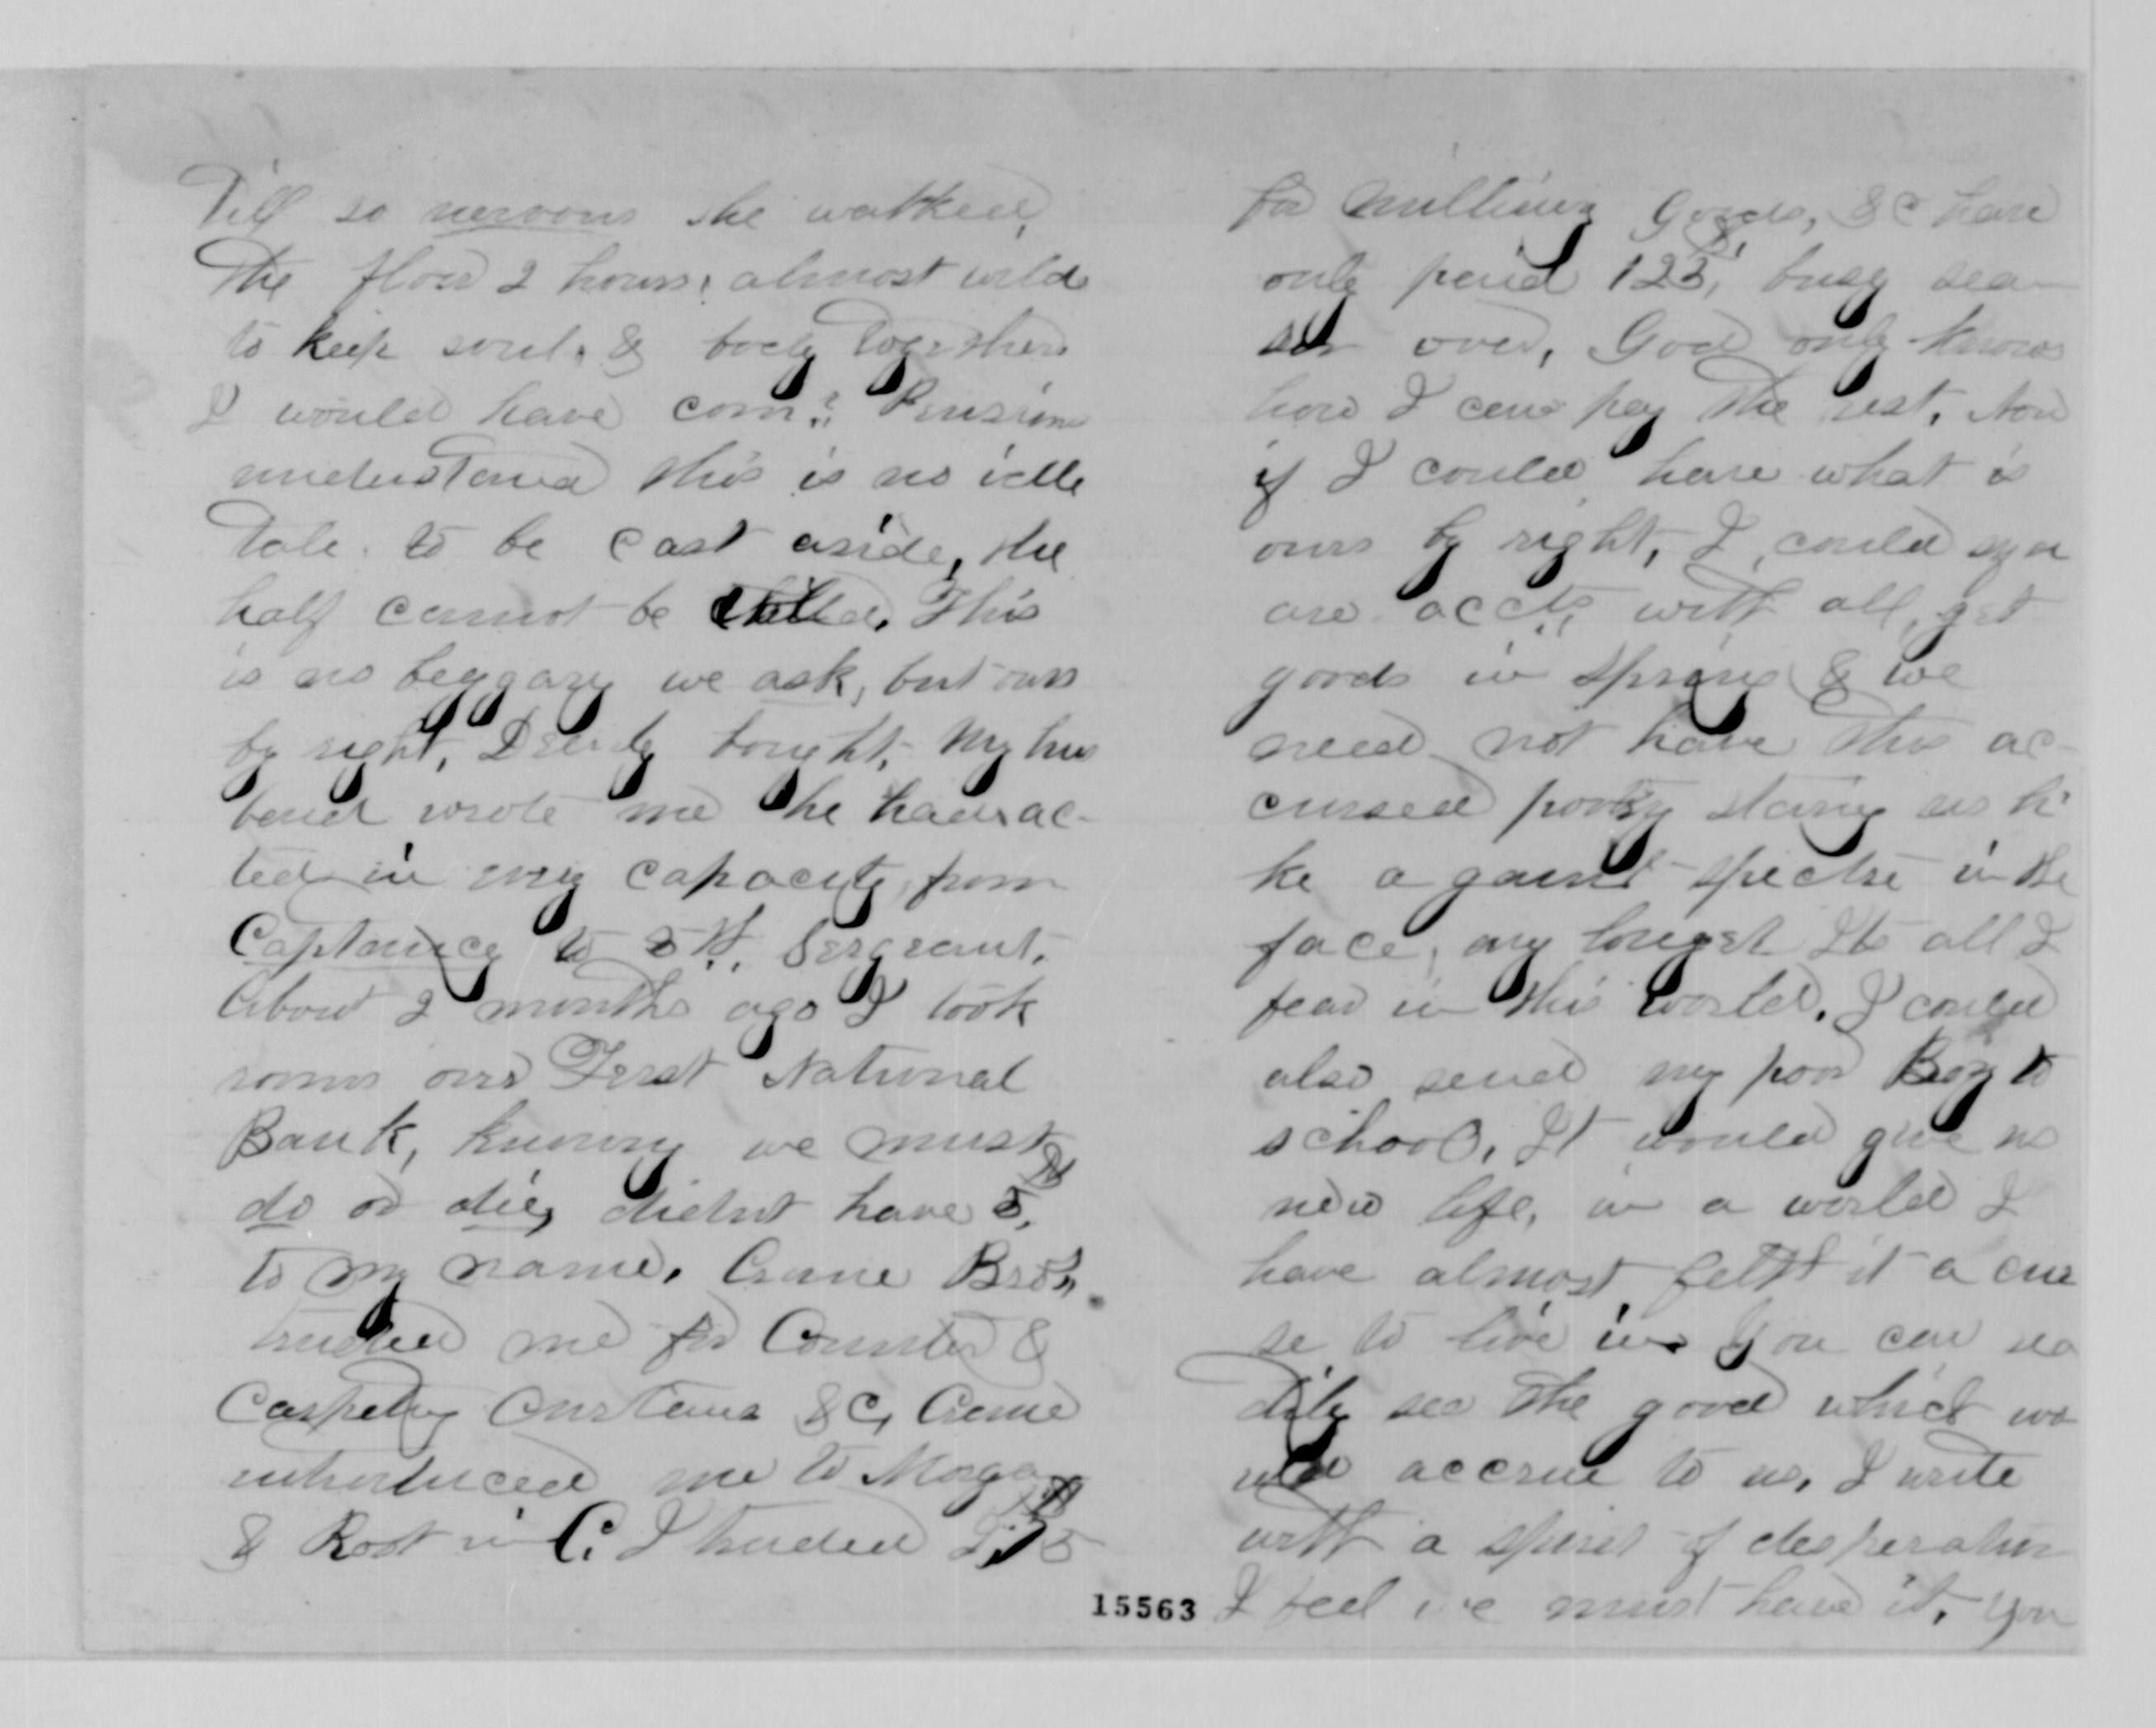 Till so nervous she walked,
the floor 2 hours, almost wild
to keep soul, & body together
I would have com: Pension
understand this is no idle
tale to be cast aside, the
half cannot be This
is no beggary we ask, but ours
by right, Dearly bought, My hus
band wrote me he had ac-
ted in every capacity from
Captaincy to 5th Sergeant.
About 2 months ago I took
rooms over First National
Bank, knowing we must
do or die, didnt have 5 $
to my name. Crane Bros,
trusted me for Counter &
Carpeting Curtains &C, Crane
introduced me to Morgan
& Root in C. I traded
for millinery Goods, &C have
only paid 123, $ busy sea-
son over, God only knows
how I can pay the rest. Now
if I could have what is
ours by right, I could squ
are accts with all, get
goods in Spring & we
need not have this ac-
cursed poverty staring us li
ke a gaunt spectre in the
face, any longer Its all I
fear in this world. I could
also send my poor Boy to
school, It would give us
new life, in a world I
have almost felt it a cur
se to live in You can rea
dily see the good which wo
uld accrue to us, I write
with a spirit of desperation
I feel we must have it, You
15563